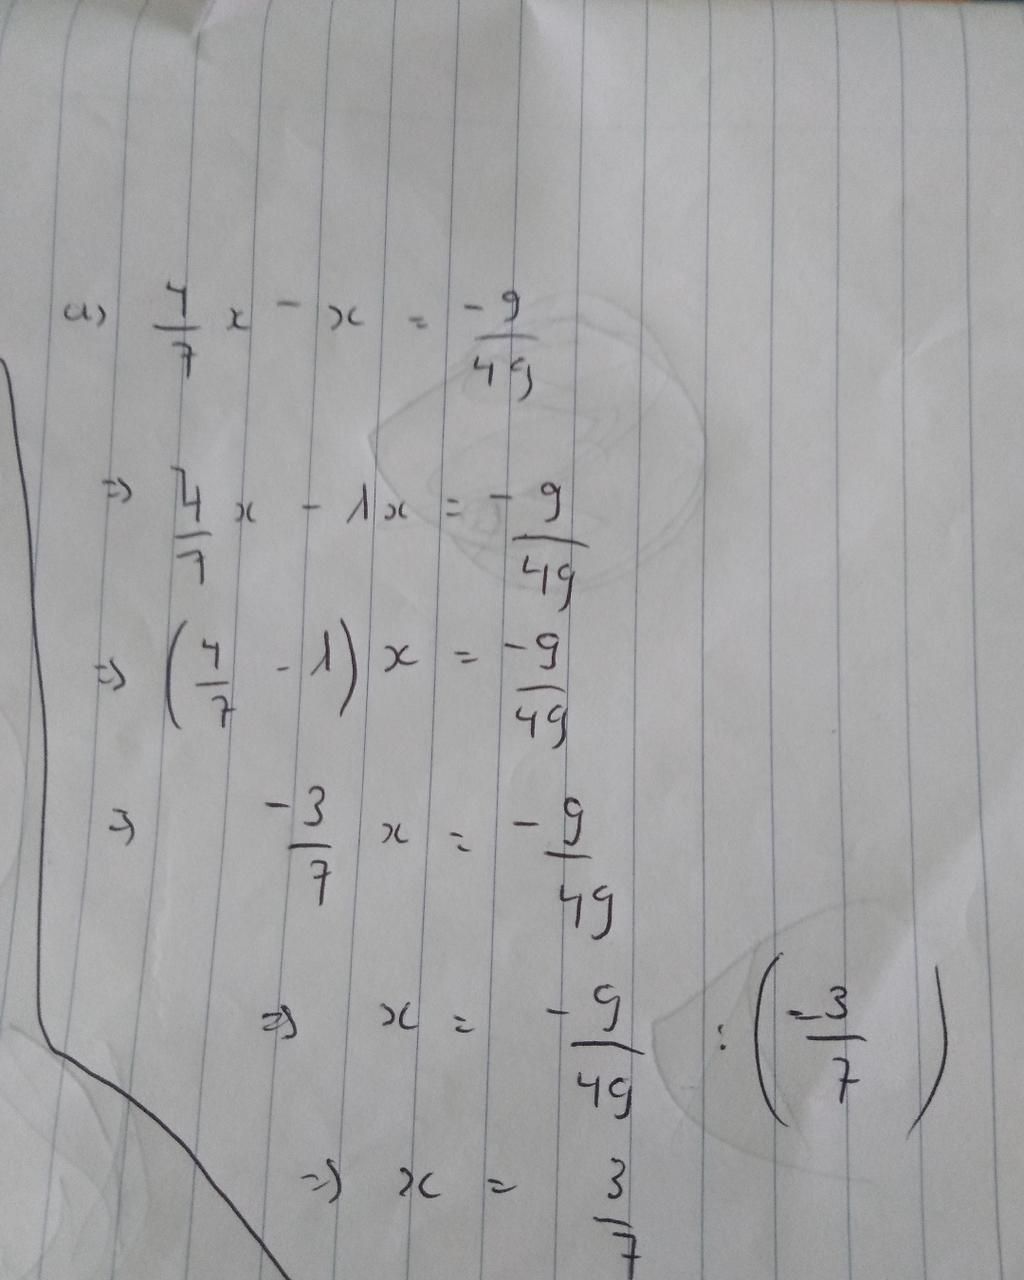 a) 4/7 x - x = -9/49
=> 4/7 x - 1x = -9/49
=> (4/7 - 1) x = -9/49
=> -3/7 x = -9/49
=> x = -9/49 : (-3/7)
=> x = 3/7